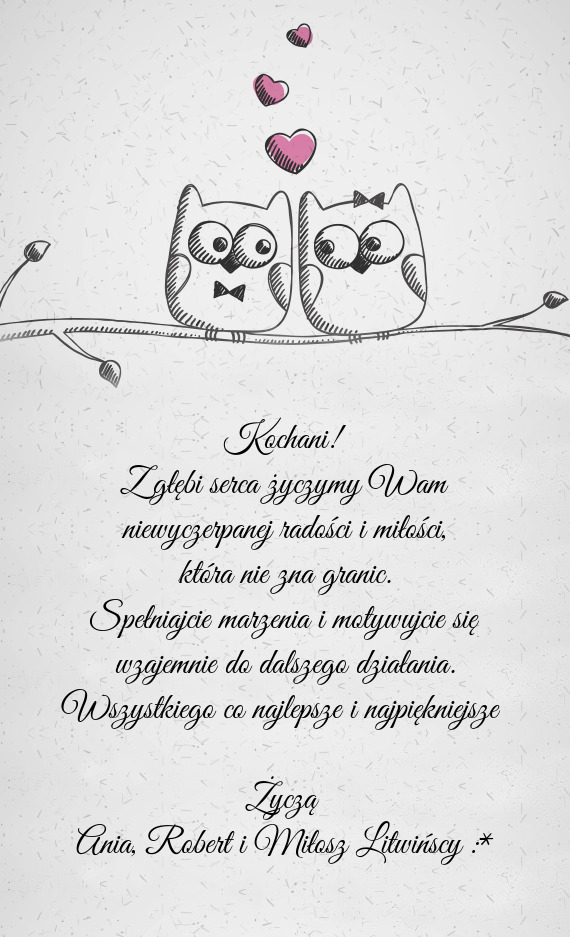 Kochani!
Z głębi serca życzymy Wam
niewyczerpanej radości i miłości,
która nie zna granic.
Spełniajcie marzenia i motywujcie się
wzajemnie do dalszego działania.
Wszystkiego co najlepsze i najpiękniejsze
Życzą
Ania, Robert i Miłosz Litwińscy :*